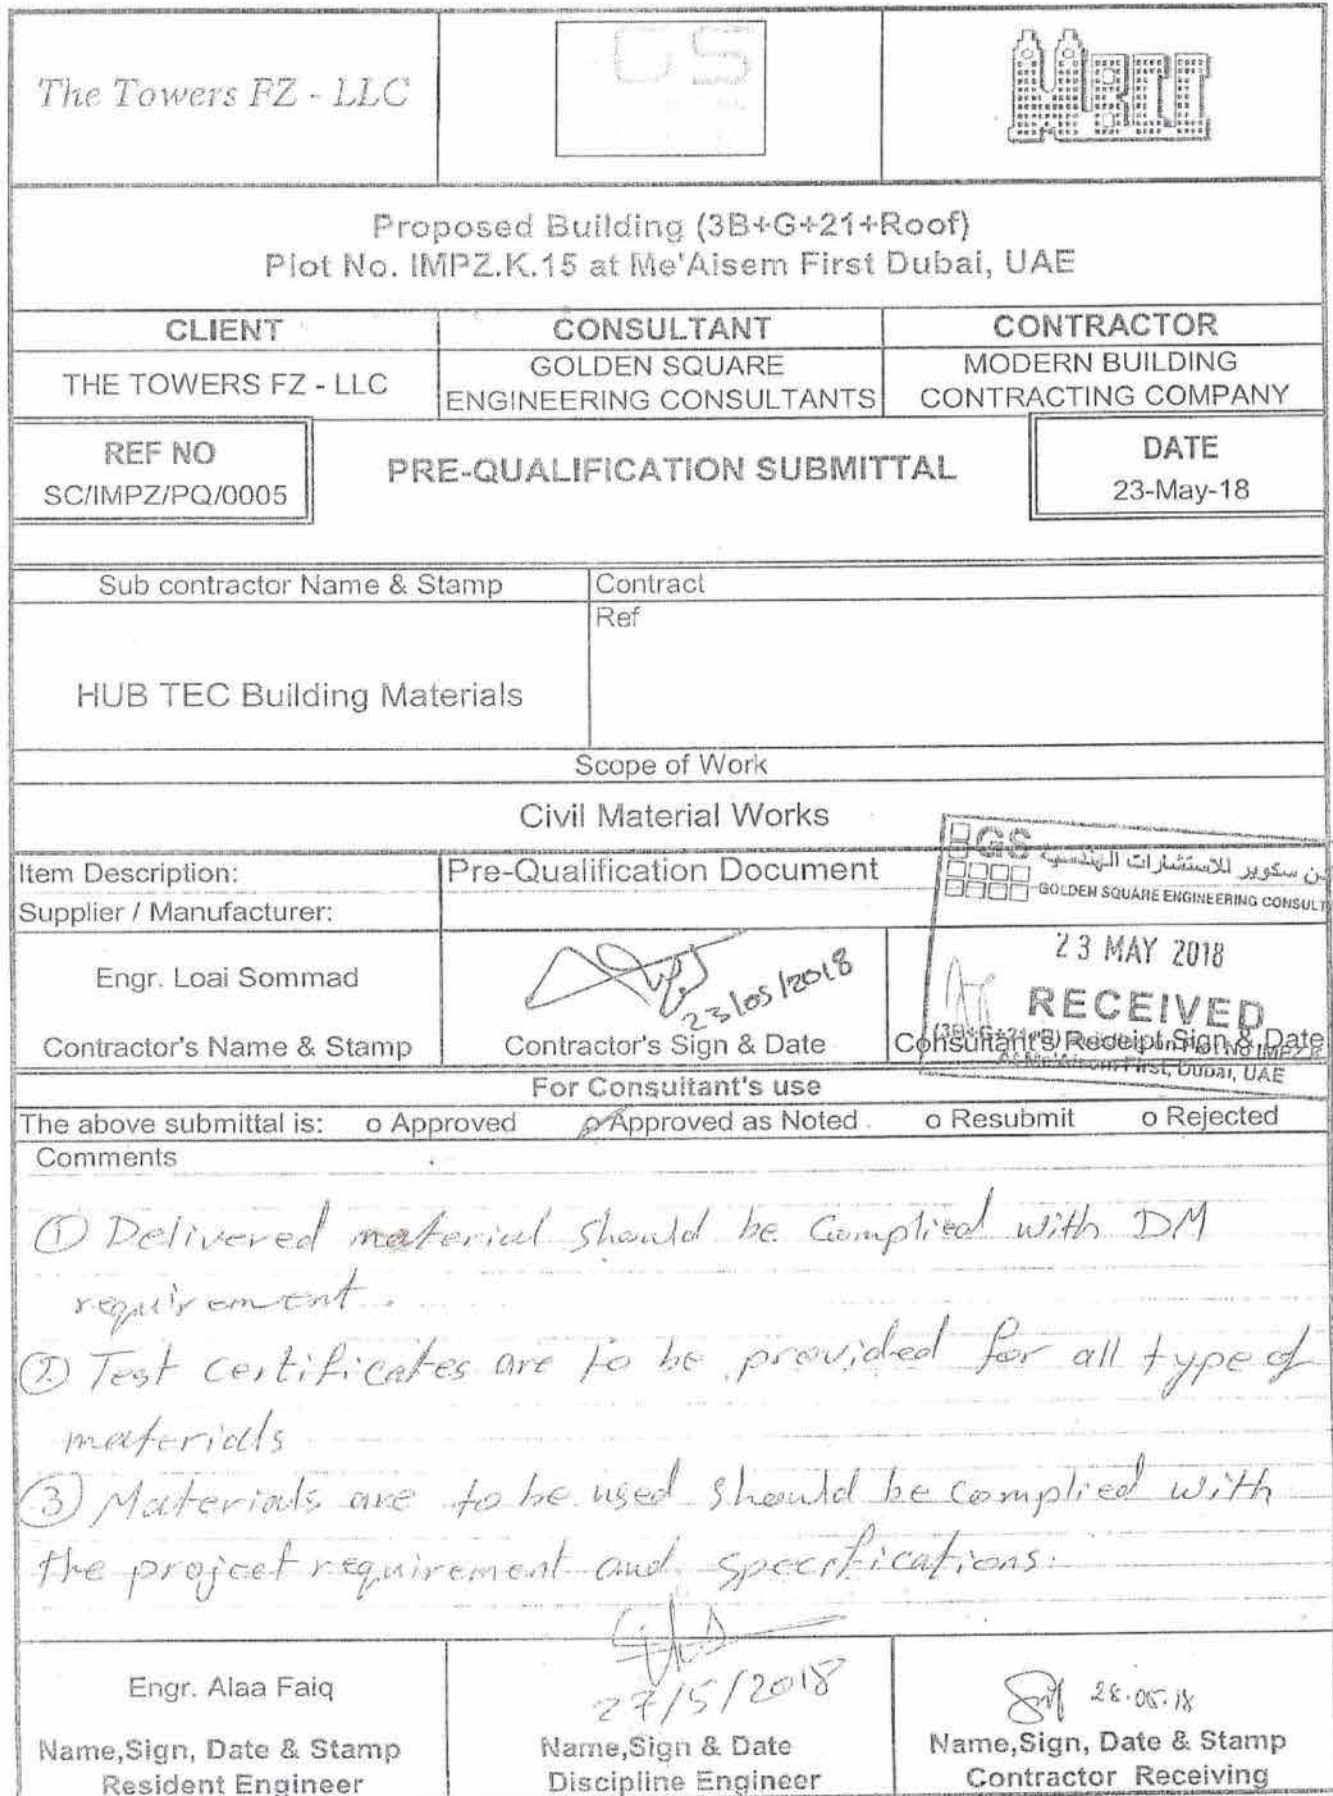 The Towers FZ - LLC
GS
MBCC
Proposed Building (3B+G+21+Roof)
Plot No. IMPZ.K.15 at Me'Aisem First Dubai, UAE
CLIENT CONSULTANT CONTRACTOR
THE TOWERS FZ - LLC
GOLDEN SQUARE
ENGINEERING CONSULTANTS
MODERN BUILDING
CONTRACTING COMPANY
REF NO
SC/IMPZ/PQ/0005
PRE-QUALIFICATION SUBMITTAL
DATE
23-May-18
Sub contractor Name & Stamp
Contract
Ref
HUB TEC Building Materials
Scope of Work
Civil Material Works
Item Description: Pre-Qualification Document
Supplier / Manufacturer:
GS
ن سكوير للاستشارات الهندسية
GOLDEN SQUARE ENGINEERING CONSULT
23 MAY 2018
RECEIVED
At Me'Aisem First, Dubai, UAE
Engr. Loai Sommad
23/05/2018
Contractor's Name & Stamp
Contractor's Sign & Date
Consultant's Receipt Sign & Date
For Consultant's use
The above submittal is: o Approved o Approved as Noted o Resubmit o Rejected
Comments
① Delivered material should be Complied with DM
requirement.
② Test certificates are to be provided for all type of
materials
③ Materials are to be used should be complied with
the project requirement and specifications.
Engr. Alaa Faiq
27/5/2018
28.05.18
Name,Sign, Date & Stamp
Resident Engineer
Name,Sign & Date
Discipline Engineer
Name,Sign, Date & Stamp
Contractor Receiving